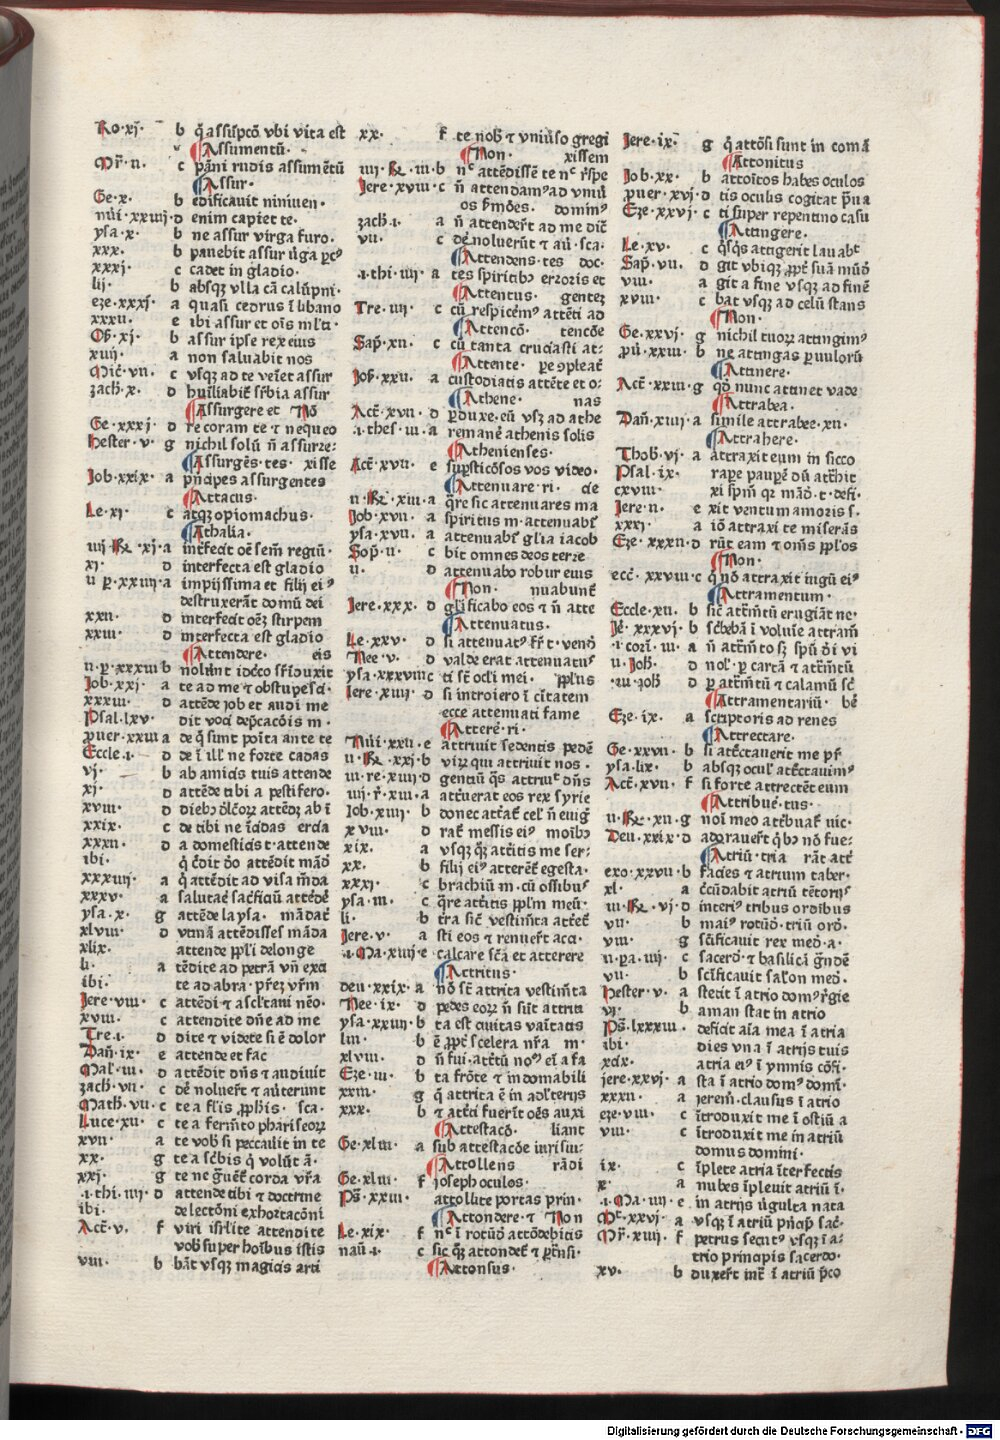 Ro·xj· b q̄ assūpcō vbi vita est
¶Assumentū·
Mr̄·ii· c pāni rudis assumētū
¶Assur·
Ge·x· b edificauit niniuen·
nūi·xxiiij·d enim capiet te·
ysa·x· b ne assur virga furo·
xxx· b panebit assur
xxxj· c cadet in gladio·
lij· b absqꝫ vlla cā calūpni·
eze·xxxj· a quasi cedrus ī libano
xxxii· e ibi assur et oīs ml'ti·
Os̄·xj· b assur ipse rex eius
xiiij· a non saluabit nos
Mic̄·vii· c vsqꝫ ad te veīet assur
zach·x· d huiliabit̄ sr̄bia assur
¶Assurgere et Nō
Ge·xxxj· d re coram te ⁊ nequeo
hester·v· g nichil solū n̄ assurre:
¶Assurgēs·tes· xisse
Job·xxix· a pn̄cipes assurgentes
¶Attacus·
Le·xj· c atqꝫ opiomachus·
¶Athalia·
iiij·R̄·xj·a int̄fecit oē sem̄ regiū·
xj· d interfecta est gladio
ii·p̄·xxiiij·a impijssima et filij ei⁹
destruxerāt domū dei
xxii· d interfecit oēꝫ stirpem
xxiii· d interfecta est gladio
¶Attendere· eis
ii·p̄·xxxiii b nolūnt idc̄co
Job·xxj· a te ad me ⁊ obstupesci·
xxxiii· d attēde job et audi me
Psal·lxv· dit voci dep̄cacōis m·
prouer·xxiii a de q̄ sunt poīta ante te
Eccle·i· d de ī ill' ne forte cadas
vj· b ab amicis tuis attende
xj· d attēde tibi a pestifero·
xviii· d
xxix· c de tibi ne īcidas erēa
xxxii· d a domesticis t·attende
ibi· q̄ c̄dit do attēdit mād
xxxiiij· a q̄ attēdit ad visa m̄da
xxxv· a salutar̄ sac̄ficiū attēdē
ysa·x· g attēde laysa· mādat̄
xlviii· d vtinā attēdisses māda
xlix· attende ppl'i delonge
li· a tēdite ad petrā vn̄ exci
ibi· te ad abra·pr̄eꝫ vr̄m
Jere·viii· c attēdi ⁊ ascl'tani nēo·
xviii· c attendite dn̄e ad me
Tre·i· d dite ⁊ videte si ē dolor
Dan̄·ix· e attende et fac
Mal·iii· d attēdit dn̄s ⁊ audiuit
zach·vii· c dē noluer̄t ⁊ au̅terunt
Math·vii·c te a fl'is pphis· sca·
Luce·xii· c te a ferm̄to phariseoꝝ
xvii· a te vob si peccauit in te
xx· g te a sc̄bis q̄ volūt ā·
xxj· g te ne g̅uēt̄ corda vr̄a
·i·thi·iiij·d attende tibi ⁊ doctrine
ibi· de lectōni exhortacōni
Act̄·v· f viri isr̄lite attendite
vob super hoibus istis
viii· b bāt vsqꝫ magicis arti
xx· f te nob ⁊ vniūso gregi
¶Non· xissem
iiij·R̄·iii·b n̄c attēdissē te n̄c r̄spe
Jere·xviii·c n̄ attendam⁹ ad vniū
os s̄mōes· domin⁹
zach·i· a n̄ attender̄t ad me dic̄
vii· c dē noluerūt ⁊ aū·sca·
¶Attendens·tes doc·
·i·thi·iiij· a tes spiritib⁹ erroris et
¶Attentus· genteꝫ
Tre·iiij· c cū respicēm⁹ attēti ad
¶Attencō· tencōe
Sap̄·xii· c cū tanta cruciasti at:
¶Attente· pe ꝯpleat̄
Job·xxii· a custodiatis attēte et o:
¶Athene· nas
Act̄·xvii· d pduxe·eū vsꝫ ad athe
·i·thes·iii·a remanē athenis solis
¶Athenienses·
Act̄·xvii· e supsticōsos vos video·
¶Attenuare·ri· cie
ii·R̄·xiii·a q̄re sic attenuares ma
Job·xvii· a spiritus m·attenuab'
ysa·xvii· a attenuab' gl'ia iacob
Sop̄·ii· c bit omnes deos terre
ii· d attenuabo robur eius
¶Non· nuabunt̄
Jere·xxx· d gl'ificabo eos ⁊ n̄ atte
¶Attenuatus·
Le·xxv· d si attenuat⁹ fr̄ t·vend
Nee·v· d valde erat attenuatu⁹
ysa·xxxviii c ti sr̄ ocl'i mei· ppl'us
Jere·xiiij· d si introiero ī citatem
ecce attenuati fame
¶Attere·ri·
Nūi·xxii·e attriuit sedentis pedē
ii·R̄·xxj·b virꝝ qui attriuit nos·
iii·re·xiiij·d gentiū q̄s attriuit dn̄s
iiij·r̄·xiii·a att̄uerat eos rex syrie
Iob·xiiij· b donec att̄at̄ cel' n̄ euig̅
xviii· d rat̄ messis ei⁹ moib⁹
xix· a vsqꝫ q̄ꝫ att̄itis me ser:
xx· b filij ei⁹ atterēt̄ egesta·
xxxj· c brachiū m·cū ossibu⁹
ysa·iii· c q̄re att̄itis ppl'm meū·
li· b tra sic̄ vestim̄ta att̄et̄
Jere·v· a sti eos ⁊ renuer̄t aca·
·i·Ma·xiiij·e calcare sc̄a et atterere
¶Attritus·
deu·xxix·a nō st̄ attrita vestim̄ta
Nee·ix· d pedes eoꝝ n̄ sūt attriti
ysa·xxiiij·b ta est ciuitas vaītatis
liii· b ē ppt̄ scelera nr̄a m·
xlviii· d n̄ fui·att̄tū no⁹ eī a fa
Eze·iii· b ta frōte ⁊ indomabili
xxiii· g q̄ attrita ē in adl'terijs
xxx· b ⁊ att̄ci fuer̄it oēs auxi
¶Attestacō· liant
Ge·xliii· a sub attestacōe iurisiu:
¶Attollens rādi
Ge·xliii· f joseph oculos·
Ps̄·xxiii· attollite portas prin·
¶Attondere·⁊ Non
Le·xix· f n̄c ī rotūd attōdebitis
naū·i· c sic q̄ꝫ attondet̄ ⁊ pt̄nsi·
¶Attonsus·
Jere·ix· g q̄ attōsi sunt in comā
¶Attonitus
Job·xx· b attoitos habes oculos
prouer·xvj·d tis oculis cogitat p̄ua
Eze·xxvj·c ti super repentino casu
¶Attingere·
Le·xv· c q̄sqꝫ attigerit lauabt
Sap̄·vii· d git vbiqꝫ ppt̄ suā mūd
viii· a git a fine vsqꝫ ad finē
xviii· c bat vsqꝫ ad celū stans
¶Non·
Ge·xxvj· g nichil tuoꝝ attingim⁹
p̄u·xxiii· b ne attingas puuloꝝ
¶Attinere·
Act̄·xxiii·g qd nunc attinet vade
¶Attrabea·
Dan̄·xiiij·a simile attrabee·xii·
¶Attrahere·
Thob·vj·a attraxit eum in sicco
Psal·ix· rape paupē dū att̄hit
cxviii· xi spm̄ qꝫ mād·t·desi·
Jere·ii· e xit ventum amoris s·
xxxj· a iō attraxi te miserās
Eze·xxxii·d rūt eam ⁊ om̄s ppl'os
¶Non·
ecc̄·xxviii·c q̄ nō attraxit iugū ei⁹
¶Attramentum·
Eccle·xii· b sic̄ att̄m̄tū erugiāt ne·
Je·xxxvj·b sc̄bebā ī voluīe attram̄
·i·corī·iii·a n̄ att̄m̄to sꝫ spū di vi
ii·Joh· d nol'·p cartā ⁊ att̄m̄tū
·iii·joh d p att̄m̄tū ⁊ calamū sc̄
¶Attramentariū· bē
Eze·ix· a scriptoris ad renes
¶Attrectare·
Ge·xxvii· b si att̄ctauerit me pr̄
ysa·lix· b absqꝫ ocul' att̄ctauim⁹
Act̄·xvii· f si forte attrectēt eum
¶Attribue·tus·
ii·R̄·xii·g noī meo att̄buat̄ vic·
Deu·xxix·d adorauer̄t q̄b⁹ nō fue:
¶Atriū·tria rāt att̄
exo·xxvii·b facies ⁊ atrium taber·
xl· a c̄cūdabit atriū tētorij⁹
iii·R̄·vj·d interi⁹ tribus ordibus
vii· b mai⁹ rotūd·triū ord·
viii· g sc̄ificauit rex med·a·
ii·pa·iiij· c sacerd·⁊ basilicā g̅ndē
vii· b sc̄ificauit sal'on med·
hester·v· a stetit ī atrio dom⁹ r̄gie
vj· b aman stat in atrio
Ps̄·lxxxiii· deficit aīa mea ī atria
ibi· dies vna ī atrijs tuis
xcix· atria ei⁹ ī ymnis cōfi·
jere·xxvj·a sta ī atrio dom⁹ domī·
xxxii· a jerem̄·clausus ī atrio
eze·viii· c ītroduxit me ī ostiū a
viii· c ītroduxit me in atriū
domus domini·
ix· c īplete atria īterfectis
x· a nubes īpleuit atriū ī·
·i·Ma·iiij·e in atrijs ūgulta nata
Mt̄·xxvj·a vsqꝫ ī atriū pn̄cip̄ sac̄·
Mr̄·xiiij· f petrus secut⁹ vsqꝫ ī a:
trio principis sacerdo·
xv· b duxer̄t int̄ ī atriū p̄co
Digitalisierung gefördert durch die Deutsche Forschungsgemeinschaft · DFG